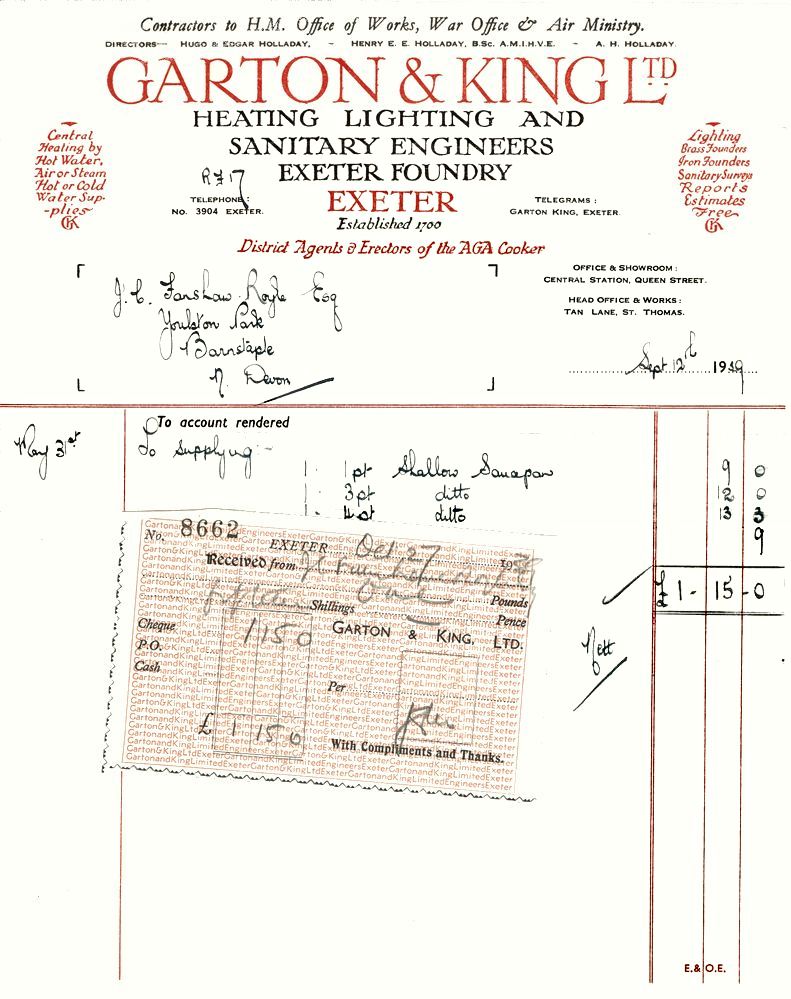 Contractors to H.M. Office of Works, War Office & Air Ministry.
DIRECTORS— HUGO & EDGAR HOLLADAY, - HENRY E. E. HOLLADAY, B.Sc. A.M.I.H.V.E. - A. H. HOLLADAY.
GARTON & KING LTD
HEATING LIGHTING AND
SANITARY ENGINEERS
EXETER FOUNDRY
EXETER
Established 1700
District Agents & Erectors of the AGA Cooker
Central
Heating by
Hot Water,
Air or Steam
Hot or Cold
Water Sup-
-plies
GK
Lighting
Brass Founders
Iron Founders
Sanitary Surveys
Reports
Estimates
Free
GK
TELEPHONE:
No. 3904 EXETER.
TELEGRAMS:
GARTON KING, EXETER.
OFFICE & SHOWROOM:
CENTRAL STATION, QUEEN STREET.
HEAD OFFICE & WORKS:
TAN LANE, ST. THOMAS.
J. C. Fanshaw Royle Esq
Youlston Park
Barnstaple
N. Devon
Sept 12th 1939
To account rendered
May 31st To supplying:-
1 1pt Shallow Saucepan 9 0
1 3pt ditto 12 0
1 4pt ditto 13 3
9
£1-15-0
Nett
No. 8662
EXETER Oct 27 19
Received from
Pounds
Shillings
Pence
GARTON & KING, LTD.
Cheque 1 15 0
P.O.
Cash
Per
£ 1 15 0
With Compliments and Thanks.
E. & O.E.